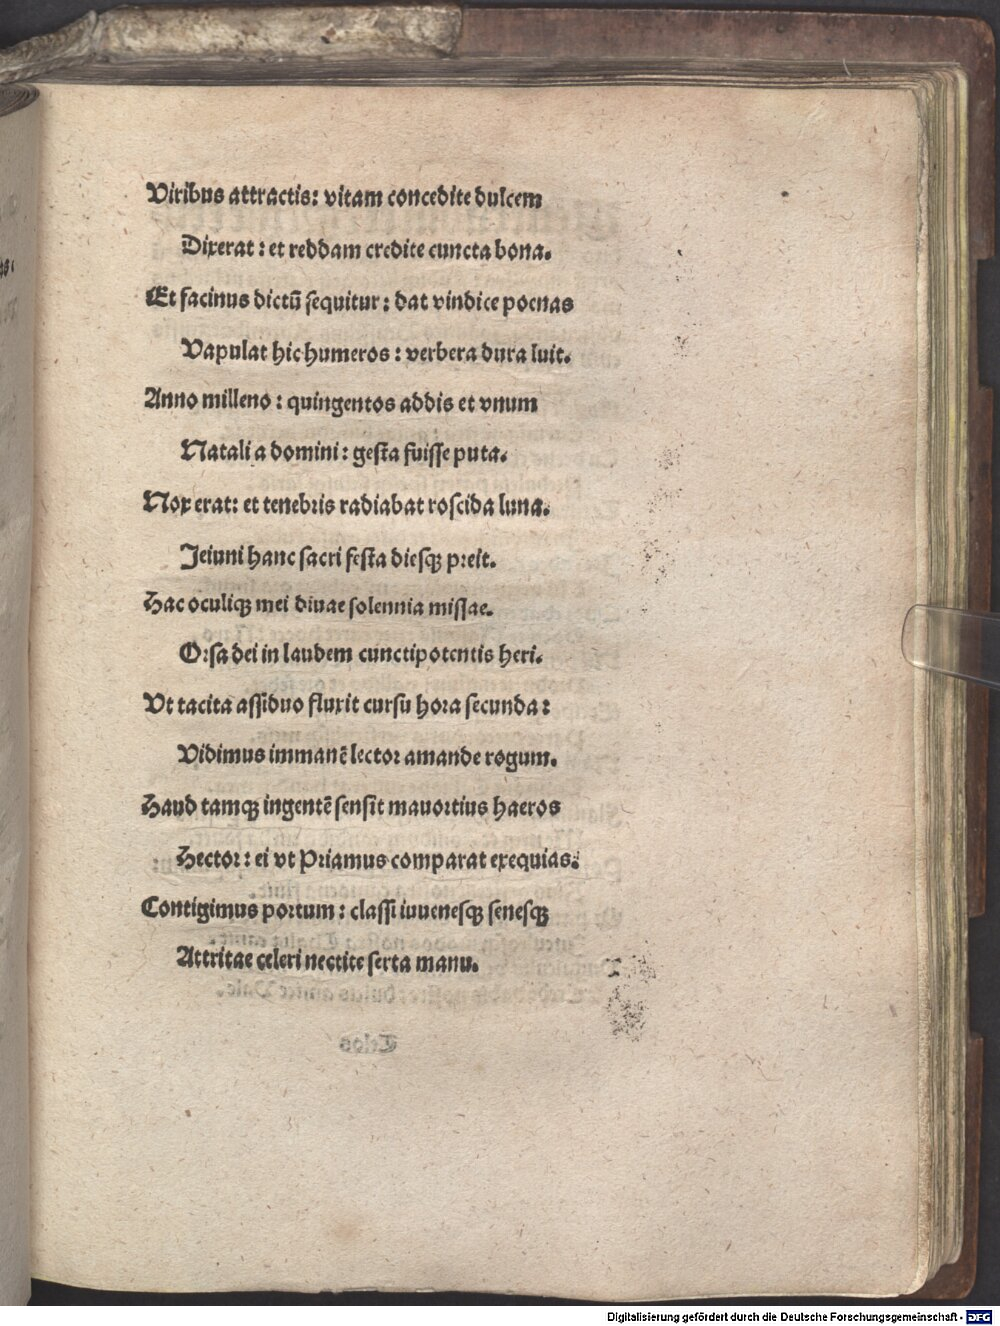 Viribus attractis: vitam concedite dulcem
Dixerat: et reddam credite cuncta bona.
Et facinus dictū sequitur: dat vindice poenas
Vapulat hic humeros: verbera dura luit.
Anno milleno: quingentos addis et vnum
Natali a domini: gesta fuisse puta.
Nox erat: et tenebris radiabat roscida luna.
Jeiuni hanc sacri festa diesqꝫ preit.
Hac oculiqꝫ mei diuae solennia missae.
Orsa dei in laudem cunctipotentis heri.
Vt tacita assiduo fluxit cursu hora secunda:
Vidimus immanē lector amande rogum.
Haud tamqꝫ ingentē sensit mauortius haeros
Hector: ei vt Priamus comparat exequias.
Contigimus portum: classi iuuenesqꝫ senesqꝫ
Attritae celeri nectite serta manu.
Digitalisierung gefördert durch die Deutsche Forschungsgemeinschaft - DFG